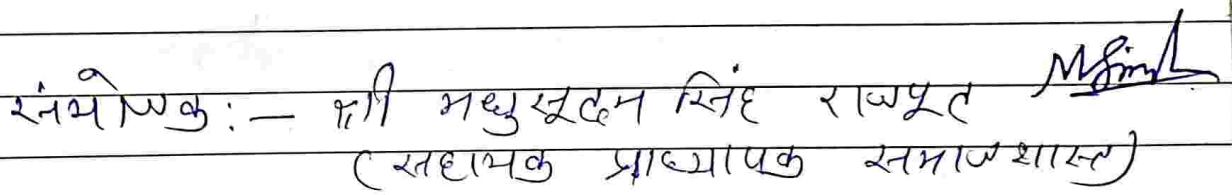 संयोजक :- श्री मधुसूदन सिंह राजपूत MSingh
(सहायक प्राध्यापक समाजशास्त्र)